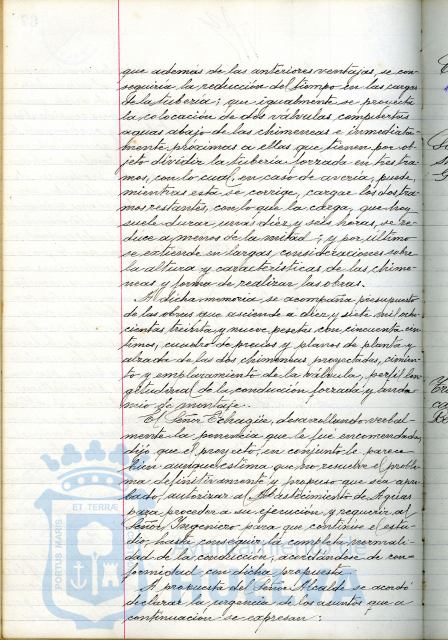 que además de las anteriores ventajas, se con-
seguiría la reducción del tiempo en las cargas
de la tubería; que igualmente se proyecta
la colocación de dós válvulas compuertas
aguas abajo de las chimeneas e inmediata-
mente próximas a ellas que tienen por ob-
jeto dividir la tubería forzada en tres tra-
mos, con lo cual, en caso de avería, puede,
mientras esta se corrige, cargar los dos tra-
mos restantes, con lo que la carga, que hoy
suele durar unas diez y seis horas, se re-
duce a menos de la mitad; y por último
se extiende en largas consideraciones sobre
la altura y características de las chime-
neas y forma de realizar las obras.
A dicha memoria se acompaña presupuesto
de las obras que asciende a diez y siete mil ocho-
cientas treinta y nueve pesetas con cincuenta cén-
timos, cuadro de precios y planos de planta y
alzada de las dos chimeneas proyectadas, cimien-
to y emplazamiento de la válvula, perfil lon-
gitudinal de la conducción forzada y anda-
mio de montaje.
El Señor Echagüe, desarrollando verbal-
mente la ponencia que le fue encomendada,
dijo que el proyecto, en conjunto le parece
bien aunque estima que no resuelve el proble-
ma definitivamente y propuso que sea apro-
bado, autorizar al Abastecimiento de Aguas
para proceder a su ejecución y requerir al
Señor Ingeniero para que continúe el estu-
dio, hasta conseguir la completa normali-
dad de la conducción, acordándose de con-
formidad con dicha propuesta.
A propuesta del Señor Alcalde se acordó
declarar la urgencia de los asuntos que a
continuación se expresan:
PORTUS MARIS
ET TERRÆ